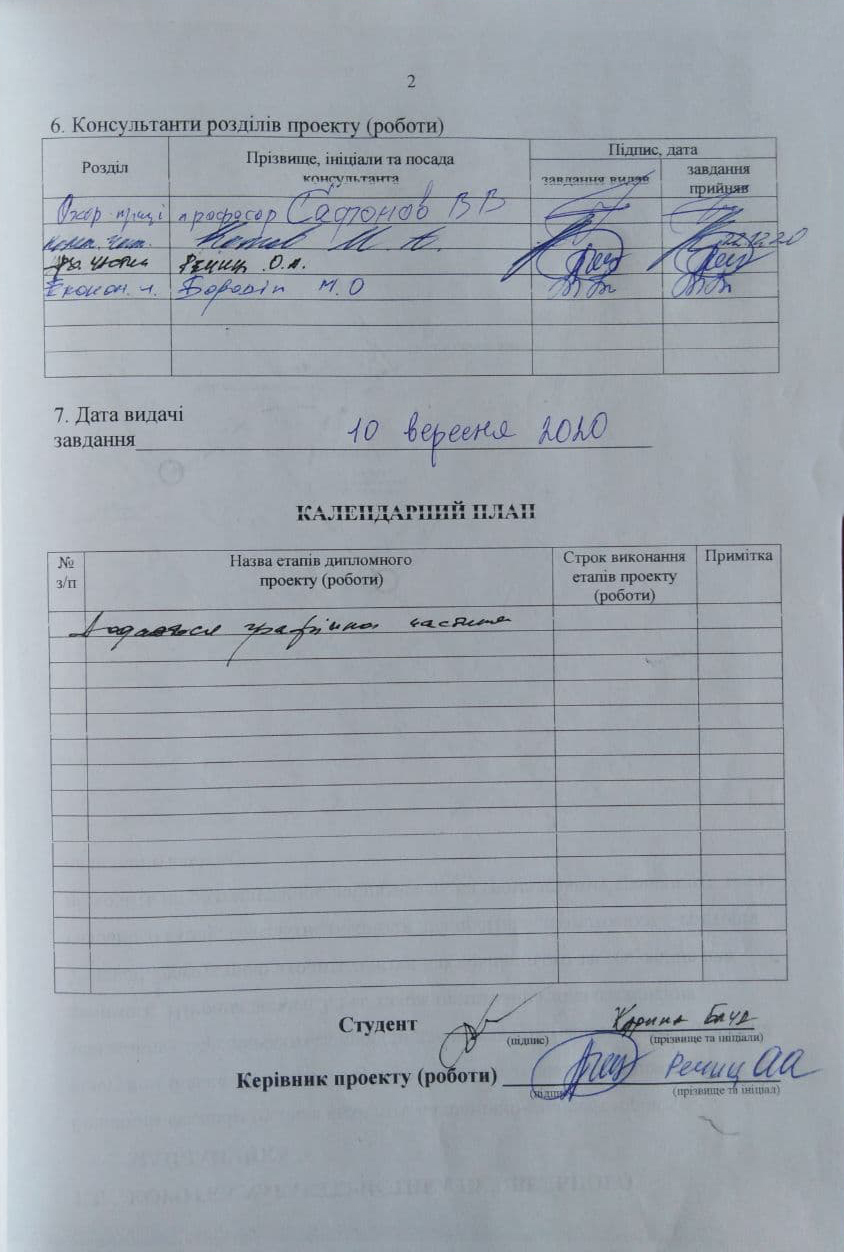 2
6. Консультанти розділів проекту (роботи)
Розділ
Прізвище, ініціали та посада
консультанта
Підпис, дата
завдання видав
завдання
прийняв
Охор. праці професор Сафонов В В
22.12.20
О.А.
Економ. ч. Бородін М.О
7. Дата видачі
завдання 10 вересня 2020
КАЛЕНДАРНИЙ ПЛАН
№
з/п
Назва етапів дипломного
проекту (роботи)
Строк виконання
етапів проекту
(роботи)
Примітка
Додається графічна частина
Студент
Карина
(підпис)
(прізвище та ініціали)
Керівник проекту (роботи)
(прізвище та ініціал)